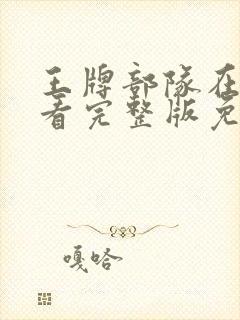 王牌部队在
看完整版免
嘎哈